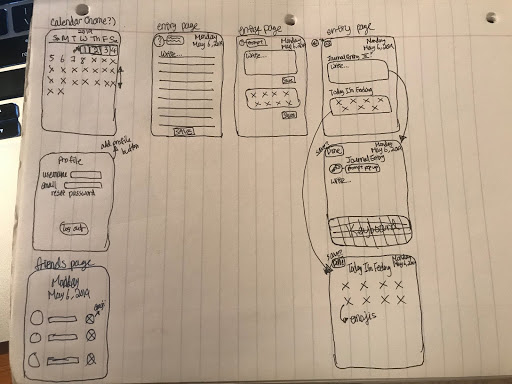 calendar (home?)
2019
S M T W Th F S
1 2 3 4
5 6 7 8 x x x
x x x x x x x
x x x x x x x
x x
add profile
button
Profile
username
email
reset password
log out
friends page
Monday
May 6, 2019
emoji
entry page
Monday
May 6, 2019
Write...
SAVE
entry page
prompt
Monday
May 6, 2019
Write...
Save
x x x x
x x x x
Save
entry page
Monday
May 6, 2019
Journal Entry
Write...
Today I'm Feeling
x x x x
x x x x
save
Done
Monday
May 6, 2019
Journal Entry
prompt pop up
Write...
Keyboard
save
Today I'm Feeling
Monday
May 6, 2019
x x x x
x x x x
emojis